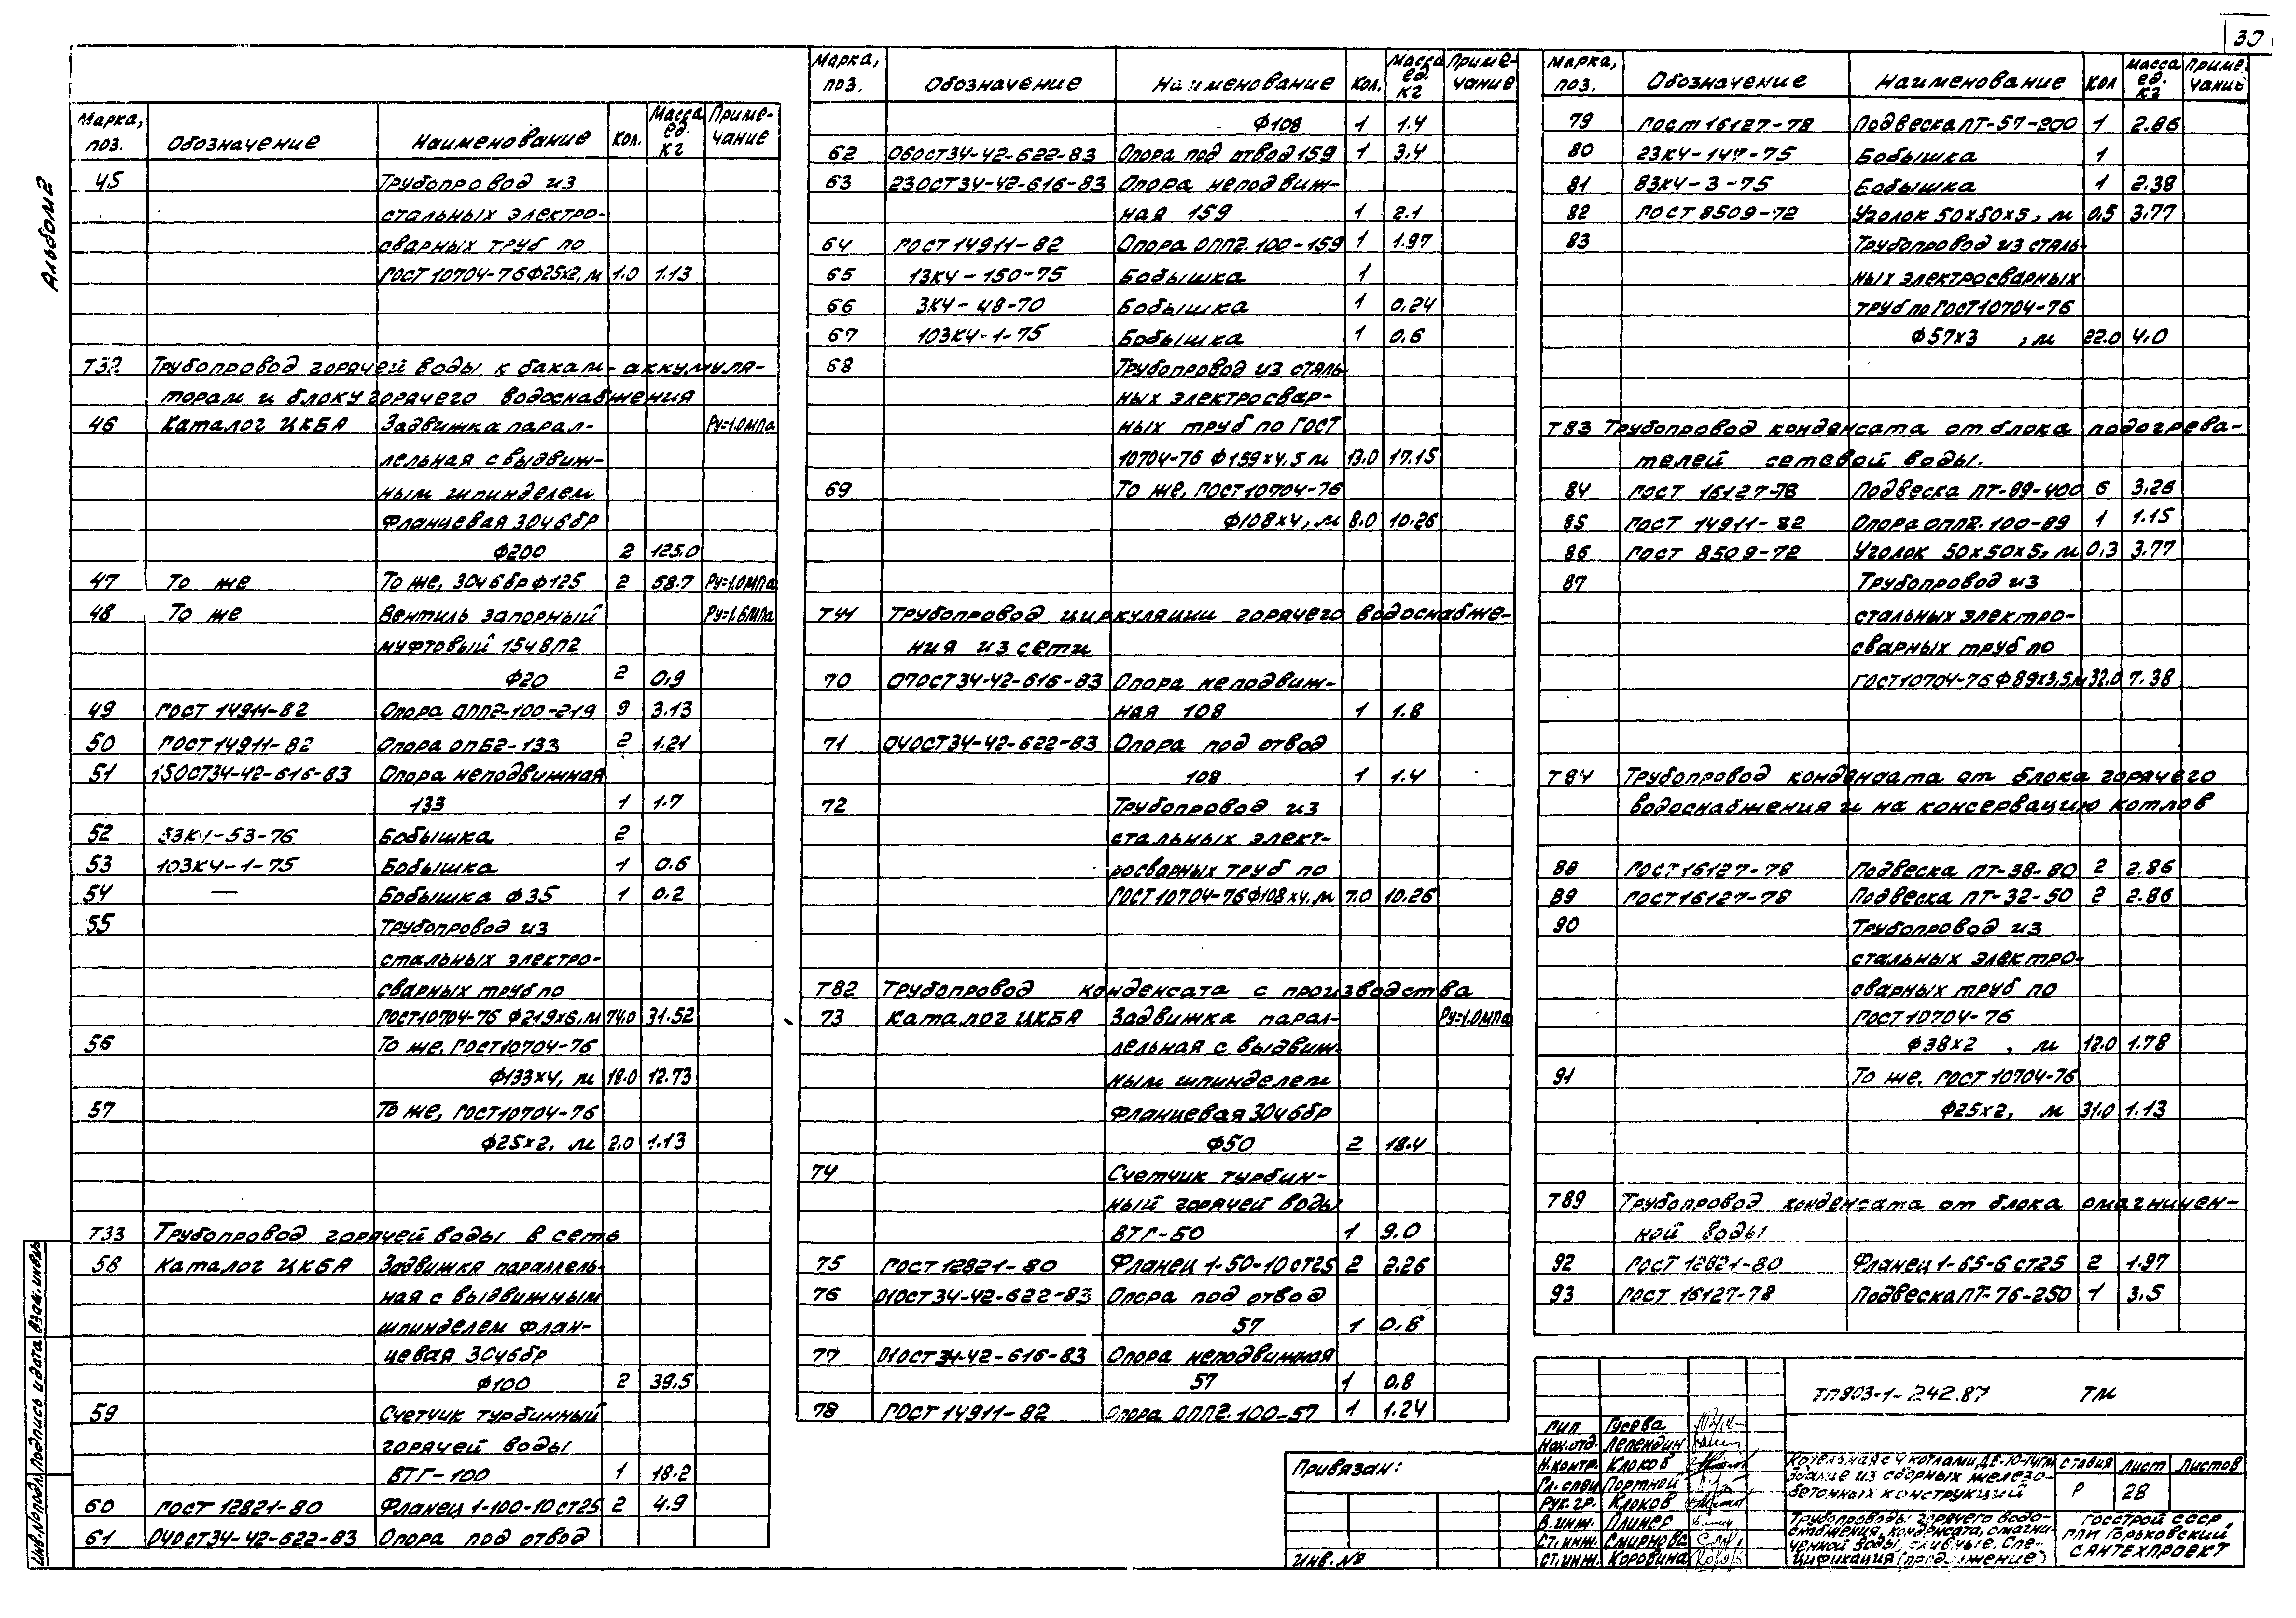 30
Альбом 2
Марка, поз. Обозначение Наименование Кол. Масса ед. кг Приме-чание
45 Трубопровод из
стальных электро-
сварных труб по
ГОСТ 10704-76 Ф25х2, м 1.0 1.13
Т32 Трубопровод горячей воды к бакам-аккумуля-
торам и блоку горячего водоснабжения
46 Каталог ЦКБА Задвижка парал- Ру=1.0мпа
лельная с выдвиж-
ным шпинделем
фланцевая 30ч6бр
Ф200 2 125.0
47 То же То же, 30ч6бр Ф125 2 58.7 Ру=1.0мпа
48 То же Вентиль запорный Ру=1.6мпа
муфтовый 15ч8п2
Ф20 2 0.9
49 ГОСТ 14911-82 Опора ОПП2-100-219 9 3.13
50 ГОСТ 14911-82 Опора ОПБ2-133 2 1.21
51 15ОСТ34-42-616-83 Опора неподвижная
133 1 1.7
52 53К4-53-76 Бобышка 2
53 103К4-1-75 Бобышка 1 0.6
54 — Бобышка Ф35 1 0.2
55 Трубопровод из
стальных электро-
сварных труб по
ГОСТ10704-76 Ф219х6, м 74.0 31.52
56 То же, ГОСТ10704-76
Ф133х4, м 18.0 12.73
57 То же, ГОСТ10704-76
Ф25х2, м 2.0 1.13
Т33 Трубопровод горячей воды в сеть
58 Каталог ЦКБА Задвижка параллель-
ная с выдвижным
шпинделем флан-
цевая 30ч6бр
Ф100 2 39.5
59 Счетчик турбинный
горячей воды
ВТГ-100 1 18.2
60 ГОСТ 12821-80 Фланец 1-100-10 ст25 2 4.9
61 04ОСТ34-42-622-83 Опора под отвод
Марка, поз. Обозначение Наименование Кол. Масса ед. кг Приме-чание
Ф108 1 1.4
62 06ОСТ34-42-622-83 Опора под отвод 159 1 3.4
63 23ОСТ34-42-616-83 Опора неподвиж-
ная 159 1 2.1
64 ГОСТ 14911-82 Опора ОПП2.100-159 1 1.97
65 13К4-150-75 Бобышка 1
66 3К4-48-70 Бобышка 1 0.24
67 103К4-1-75 Бобышка 1 0.6
68 Трубопровод из сталь-
ных электросвар-
ных труб по ГОСТ
10704-76 Ф159х4,5 м 13.0 17.15
69 То же, ГОСТ10704-76
Ф108х4, м 8.0 10.26
Т41 Трубопровод циркуляции горячего водоснабже-
ния из сети
70 07ОСТ34-42-616-83 Опора неподвиж-
ная 108 1 1.8
71 04ОСТ34-42-622-83 Опора под отвод
108 1 1.4
72 Трубопровод из
стальных элект-
росварных труб по
ГОСТ 10704-76 Ф108х4, м 7.0 10.26
Т82 Трубопровод конденсата с производства
73 Каталог ЦКБА Задвижка парал- Ру=1.0мпа
лельная с выдвиж-
ным шпинделем
фланцевая 30ч6бр
Ф50 2 18.4
74 Счетчик турбин-
ный горячей воды
ВТГ-50 1 9.0
75 ГОСТ 12821-80 Фланец 1-50-10 ст25 2 2.26
76 01ОСТ34-42-622-83 Опора под отвод
57 1 0.6
77 01ОСТ34-42-616-83 Опора неподвижная
57 1 0.8
78 ГОСТ 14911-82 Опора ОПП2.100-57 1 1.24
Марка, поз. Обозначение Наименование Кол Масса ед. кг Приме-чание
79 ГОСТ 16127-78 Подвеска ПТ-57-200 1 2.86
80 23К4-147-75 Бобышка 1
81 83К4-3-75 Бобышка 1 2.38
82 ГОСТ 8509-72 Уголок 50х50х5, м 0.5 3.77
83 Трубопровод из сталь-
ных электросварных
труб по ГОСТ10704-76
Ф57х3 , м 22.0 4.0
Т83 Трубопровод конденсата от блока подогрева-
телей сетевой воды.
84 ГОСТ 16127-78 Подвеска ПТ-89-400 6 3.26
85 ГОСТ 14911-82 Опора ОПП2.100-89 1 1.15
86 ГОСТ 8509-72 Уголок 50х50х5, м 0.3 3.77
87 Трубопровод из
стальных электро-
сварных труб по
ГОСТ10704-76 Ф89х3,5, м 32.0 7.38
Т84 Трубопровод конденсата от блока горячего
водоснабжения и на консервацию котлов
88 ГОСТ 16127-78 Подвеска ПТ-38-80 2 2.86
89 ГОСТ 16127-78 Подвеска ПТ-32-50 2 2.86
90 Трубопровод из
стальных электро-
сварных труб по
ГОСТ 10704-76
Ф38х2 , м 12.0 1.78
91 То же, ГОСТ 10704-76
Ф25х2, м 31.0 1.13
Т89 Трубопровод конденсата от блока омагничен-
ной воды
92 ГОСТ 12821-80 Фланец 1-65-6 ст25 2 1.97
93 ГОСТ 16127-78 Подвеска ПТ-76-250 1 3.5
Привязан:
Инв. №
ТП903-1-242.87 ТМ
ГИП Гусева
Нач.отд. Лепендин
Н.контр. Клоков
Гл.спец Портной
Рук.гр. Клоков
В.инж. Плинер
Ст.инж. Смирнова
Ст.инж. Коровина
Котельная с 4 котлами ДЕ-10-14ГМ
Здание из сборных железо-
бетонных конструкций
Стадия Лист Листов
Р 28
Трубопроводы горячего водо-
снабжения, конденсата, омагни-
ченной воды, сливные. Спе-
цификация (продолжение)
ГОССТРОЙ СССР
ГПИ Горьковский
САНТЕХПРОЕКТ
Инв.№подл. Подпись и дата Взам.инв.№